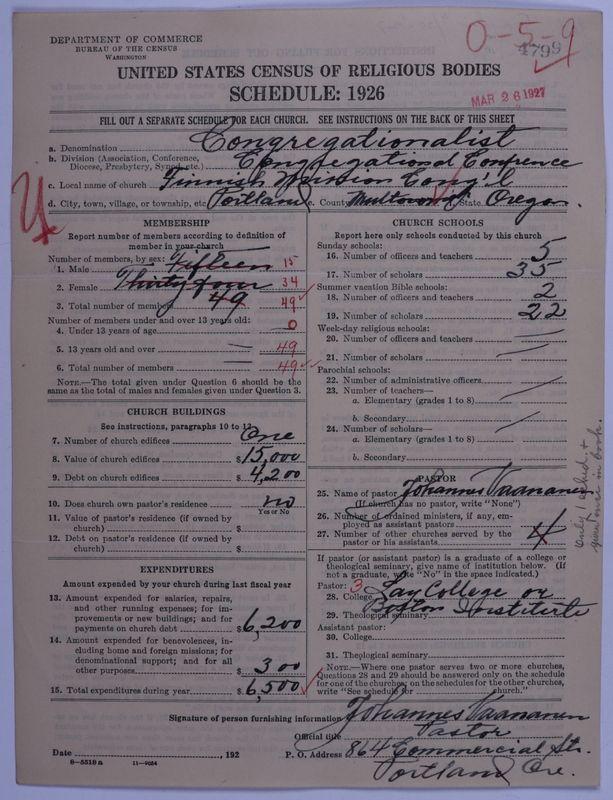 DEPARTMENT OF COMMERCE
BUREAU OF THE CENSUS
WASHINGTON
0-5-9
4799
UNITED STATES CENSUS OF RELIGIOUS BODIES
SCHEDULE: 1926
MAR 26 1927
FILL OUT A SEPARATE SCHEDULE FOR EACH CHURCH. SEE INSTRUCTIONS ON THE BACK OF THIS SHEET
a. Denomination Congregationalist
b. Division (Association, Conference, Diocese, Presbytery, Synod, etc.) Congregational Confrence
c. Local name of church Finnish Mission Cong'l
d. City, town, village, or township, etc. Portland e. County Multnomah State Oregon.
MEMBERSHIP
Report number of members according to definition of
member in your church
Number of members, by sex:
1. Male Fifteen 15
2. Female Thirty four 34
3. Total number of members 49 49
Number of members under and over 13 years old:
4. Under 13 years of age 0
5. 13 years old and over 49
6. Total number of members 49
NOTE.—The total given under Question 6 should be the
same as the total of males and females given under Question 3.
CHURCH BUILDINGS
See instructions, paragraphs 10 to 12
7. Number of church edifices One
8. Value of church edifices $15,000
9. Debt on church edifices $4,200
10. Does church own pastor's residence? no
Yes or No
11. Value of pastor's residence (if owned by
church) $
12. Debt on pastor's residence (if owned by
church) $
EXPENDITURES
Amount expended by your church during last fiscal year
13. Amount expended for salaries, repairs,
and other running expenses; for im-
provements or new buildings; and for
payments on church debt $6,200
14. Amount expended for benevolences, in-
cluding home and foreign missions; for
denominational support; and for all
other purposes $300
15. Total expenditures during year $6,500
CHURCH SCHOOLS
Report here only schools conducted by this church
Sunday schools:
16. Number of officers and teachers 5
17. Number of scholars 35
Summer vacation Bible schools:
18. Number of officers and teachers 2
19. Number of scholars 22
Week-day religious schools:
20. Number of officers and teachers
21. Number of scholars
Parochial schools:
22. Number of administrative officers
23. Number of teachers—
a. Elementary (grades 1 to 8)
b. Secondary
24. Number of scholars—
a. Elementary (grades 1 to 8)
b. Secondary
PASTOR
25. Name of pastor Johannes Vaananen
(If church has no pastor, write "None")
26. Number of ordained ministers, if any, em-
ployed as assistant pastors
27. Number of other churches served by the
pastor or his assistants 4
If pastor (or assistant pastor) is a graduate of a college or
theological seminary, give name of institution below. (If
not a graduate, write "No" in the space indicated.)
Pastor: 3
28. College Lay College or
29. Theological seminary Boston Institute
Assistant pastor:
30. College
31. Theological seminary
NOTE.—Where one pastor serves two or more churches,
Questions 28 and 29 should be answered only on the schedule
for one of the churches; on the schedules for the other churches,
write "See schedule for church."
Signature of person furnishing information Johannes Vaananen
Official title Pastor
Date , 192 P. O. Address 864 Commercial Str.
8-5518 a 11-9034 Portland Ore.
Only 1 sched. &